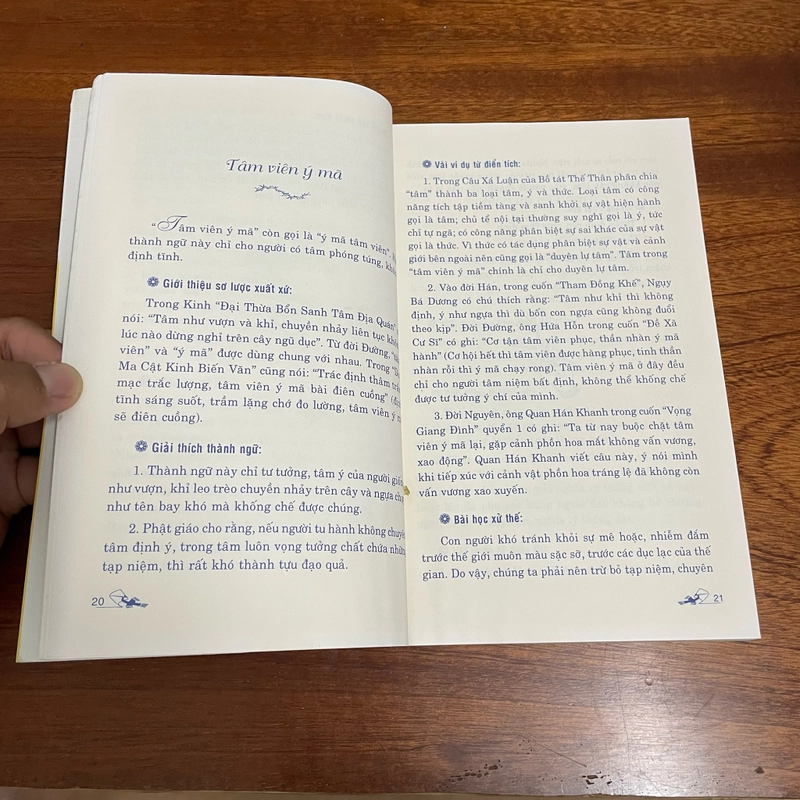 Tâm viên ý mã
“Tâm viên ý mã” còn gọi là “ý mã tâm viên”.
thành ngữ này chỉ cho người có tâm phóng túng,
định tĩnh.
Giới thiệu sơ lược xuất xứ:
Trong Kinh “Đại Thừa Bổn Sanh Tâm Địa Quán”
nói: “Tâm như vượn và khỉ, chuyền nhảy liên tục
lúc nào dừng nghỉ trên cây ngũ dục”. Từ đời Đường,
viên” và “ý mã” được dùng chung với nhau. Trong
Ma Cật Kinh Biến Văn” cũng nói: “Trác định thâm
mạc trắc lượng, tâm viên ý mã bài điên cuồng”
tĩnh sáng suốt, trầm lặng chớ đo lường, tâm viên ý
sẽ điên cuồng).
Giải thích thành ngữ:
1. Thành ngữ này chỉ tư tưởng, tâm ý của người
như vượn, khỉ leo trèo chuyền nhảy trên cây và ngựa
như tên bay khó mà khống chế được chúng.
2. Phật giáo cho rằng, nếu người tu hành không
tâm định ý, trong tâm luôn vọng tưởng chất chứa
tạp niệm, thì rất khó thành tựu đạo quả.
20
Vài ví dụ từ điển tích:
1. Trong Câu Xá Luận của Bồ tát Thế Thân phân chia
“tâm” thành ba loại tâm, ý và thức. Loại tâm có công
năng tích tập tiềm tàng và sanh khởi sự vật hiện hành
gọi là tâm; chủ tể nội tại thường suy nghĩ gọi là ý, tức
chỉ tự ngã; có công năng phân biệt sự sai khác của sự vật
gọi là thức. Vì thức có tác dụng phân biệt sự vật và cảnh
giới bên ngoài nên cũng gọi là “duyên lự tâm”. Tâm trong
“tâm viên ý mã” chính là chỉ cho duyên lự tâm.
2. Vào đời Hán, trong cuốn “Tham Đồng Khế”, Ngụy
Bá Dương có chú thích rằng: “Tâm như khỉ thì không
định, ý như ngựa thì dù bốn con ngựa cũng không đuổi
theo kịp”. Đời Đường, ông Hứa Hồn trong cuốn “Đề Xà
Cư Sĩ” có ghi: “Cơ tận tâm viên phục, thần nhàn ý mã
hành” (Cơ hội hết thì tâm viên được hàng phục, tinh thần
nhàn rỗi thì ý mã chạy rong). Tâm viên ý mã ở đây đều
chỉ cho người tâm niệm bất định, không thể khống chế
được tư tưởng ý chí của mình.
3. Đời Nguyên, ông Quan Hán Khanh trong cuốn “Vọng
Giang Đình” quyển 1 có ghi: “Ta từ nay buộc chặt tâm
viên ý mã lại, gặp cảnh phồn hoa mắt không vấn vương,
xao động”. Quan Hán Khanh viết câu này, ý nói mình
khi tiếp xúc với cảnh vật phồn hoa tráng lệ đã không còn
vấn vương xao xuyến.
Bài học xử thế:
Con người khó tránh khỏi sự mê hoặc, nhiễm đắm
trước thế giới muôn màu sặc sỡ, trước các dục lạc của thế
gian. Do vậy, chúng ta phải nên trừ bỏ tạp niệm, chuyên
21